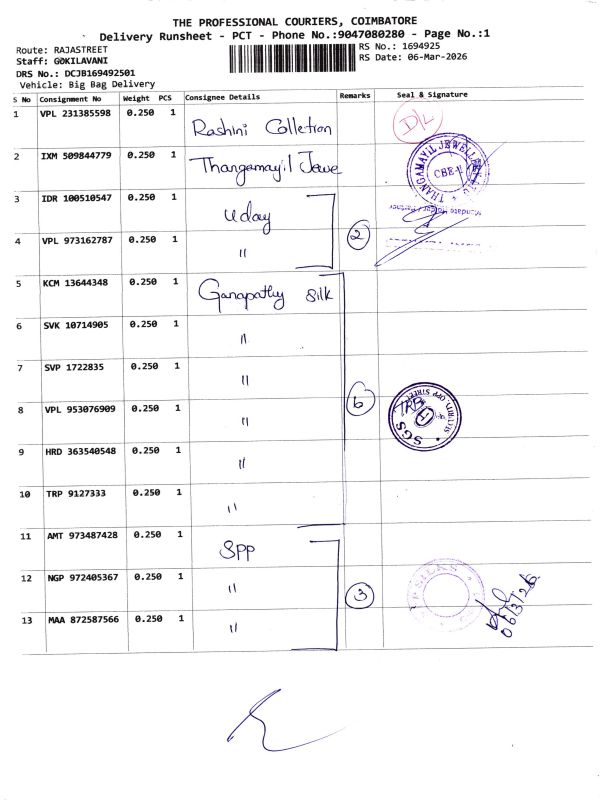 THE PROFESSIONAL COURIERS, COIMBATORE
Delivery Runsheet - PCT - Phone No.:9047080280 - Page No.:1
Route: RAJASTREET
Staff: GOKILAVANI
DRS No.: DCJB169492501
Vehicle: Big Bag Delivery
RS No.: 1694925
RS Date: 06-Mar-2026
S No Consignment No Weight PCS Consignee Details Remarks Seal & Signature
1 VPL 231385598 0.250 1 Rashini Colletion D/L
2 IXM 509844779 0.250 1 Thangamayil Jewe
THANGAMAYIL JEWELLERY
CBE-1
3 IDR 100510547 0.250 1 Uday
4 VPL 973162787 0.250 1 " 2
5 KCM 13644348 0.250 1 Ganapathy Silk
6 SVK 10714905 0.250 1 "
7 SVP 1722835 0.250 1 "
8 VPL 953076909 0.250 1 " 6
SGS
9 HRD 363540548 0.250 1 "
10 TRP 9127333 0.250 1 "
11 AMT 973487428 0.250 1 SPP
12 NGP 972405367 0.250 1 " 3
13 MAA 872587566 0.250 1 "
06/3/26